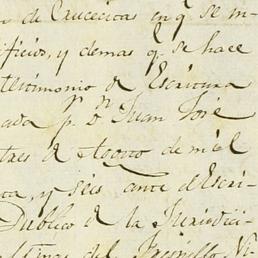 de Crucecitas en q.e se in-
ificios, y demas q.e se hace
testimonio de Escritura
ada p.r D.n Juan José
tres de Agosto de mil
ta, y seis ante el Escri-
Publico de la Jurisdici-
del Fresnillo